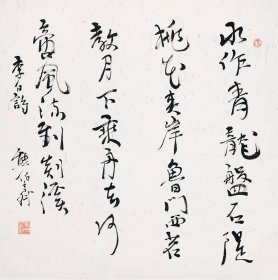 水作青龍盤石堤
桃花夾岸魯門西若
教月下乘舟去何
啻風流到剡溪
李白詩